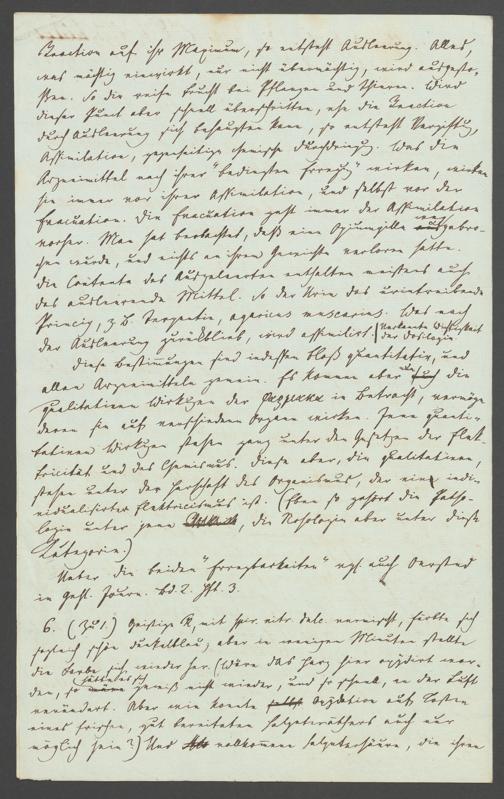 Reaction auf ihr Maximum, so entsteht Ausleerung. Alles,
was mächtig einwirkt, nur nicht übermächtig, wird ausgesto-
ßen. So die reife Frucht bei Pflanzen und Thieren. Wird
dieser Punct aber schnell überschritten, ehe die Reaction
durch Ausleerung sich behaupten kann, so entsteht Vergiftung,
Assimilation, gegenseitige chemische Durchdringung. Was die
Arzneimittel nach ihrer "bedingten Erregung" wirken, wirken
sie immer vor ihrer Assimilation, und selbst vor der
Evacuation. Die Evacuation geht immer der Assimilation
vorher. Man hat beobachtet, daß eine Opiumpille ausgebro-
chen wurde, und nichts an ihrem Gewichte verloren hatte.
Die Contenta des Ausgeleerten enthalten meistens auch
das ausleerende Mittel. So der Urin das urintreibende
Princip, z. B. Terpentin, agaricus muscarius. Was nach
der Ausleerung zurückblieb, wird assimilirt. Verkannte Wichtigkeit
der Dosologie
Diese Bestimmungen sind indessen bloß quantitativ, und
allen Arzneimitteln gemein. Es kommen aber auch die
qualitativen Wirkungen der in Betracht, vermöge
deren sie auf verschiedene Organe wirken. Jene quanti-
tativen Wirkungen stehen ganz unter den Gesetzen der Elek-
tricität und des Chemismus. Diese aber, die qualitativen,
stehen unter der Herrschaft des Organismus, der ein indi-
vidualisirter Elektricismus ist. (Eben so gehört die Patho-
logie unter jene, die Nosologie aber unter diese
Kategorie.)
Ueber die beiden "Erregbarkeiten" vgl. auch Oersted
in Gehl. Journ. Bd. 2. Hft. 3.
6. (zu 1.) Geistige mit spir. nitr. dulc. vermischt, färbte sich
sogleich schön dunkelblau; aber in wenigen Minuten stellte
die Farbe sich wieder her. (Wäre das Harz hier oxydirt wor-
den, so hätte es sich gewiß nicht wieder, und so schnell, an der Luft
verändert. Aber wie konnte Oxydation auf Kosten
eines frischen, gut bereiteten Salpeteräthers auch nur
möglich sein?) Und vollkommene Salpetersäure, die ihren